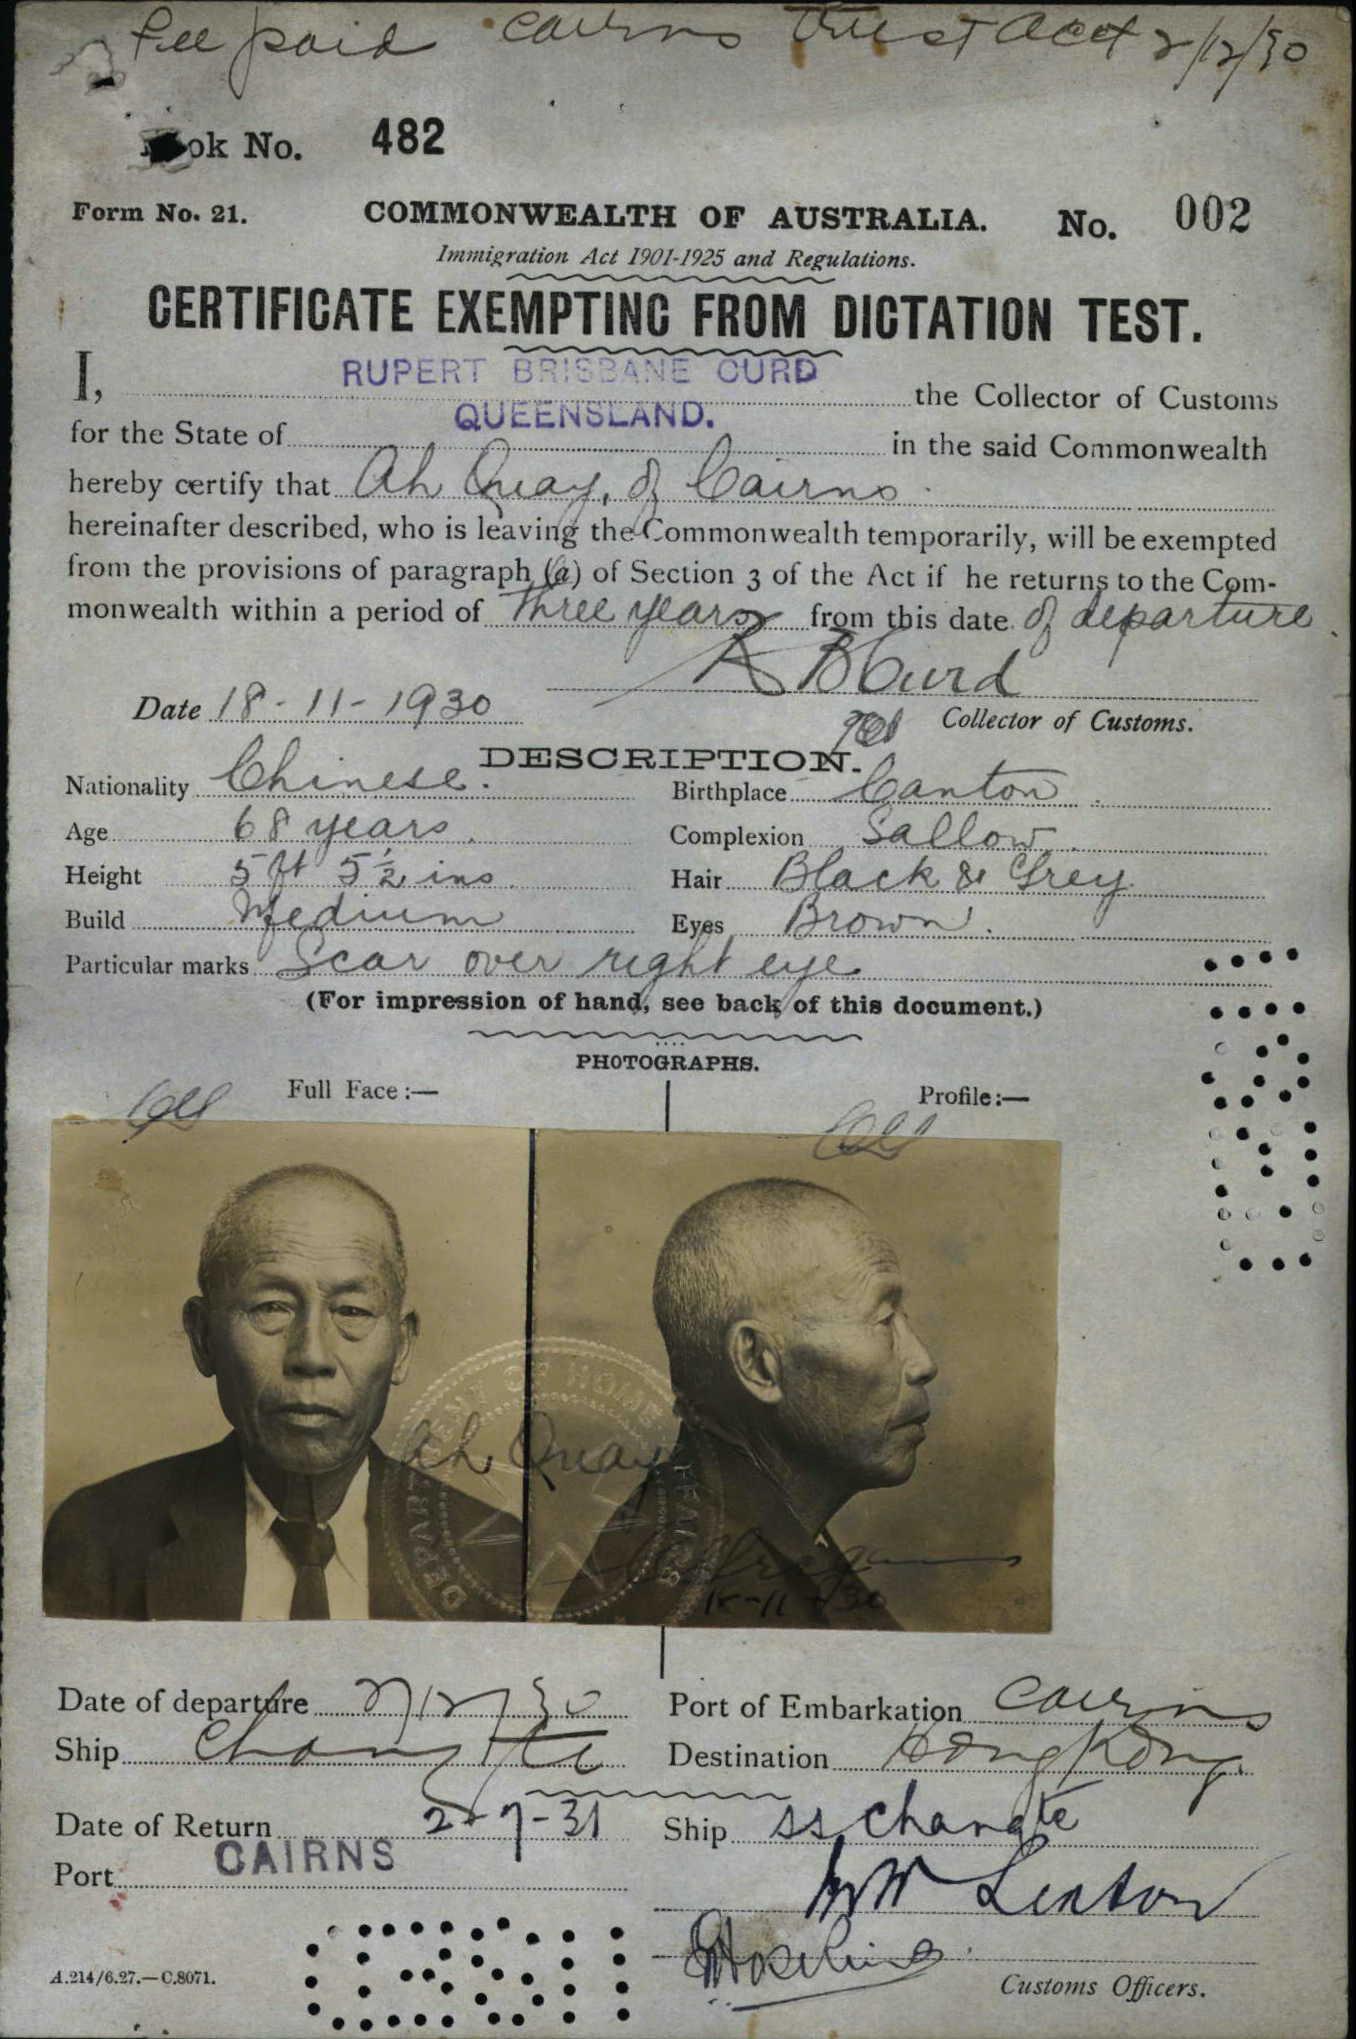 Fee paid Cairns Trust Acct 2/12/30
ok No. 482
Form No. 21. COMMONWEALTH OF AUSTRALIA. No. 002
Immigration Act 1901-1925 and Regulations.
CERTIFICATE EXEMPTING FROM DICTATION TEST.
I, RUPERT BRISBANE CURD the Collector of Customs
for the State of QUEENSLAND. in the said Commonwealth
hereby certify that Ah Quay, of Cairns.
hereinafter described, who is leaving the Commonwealth temporarily, will be exempted
from the provisions of paragraph (a) of Section 3 of the Act if he returns to the Com-
monwealth within a period of three years from this date of departure.
R B Curd
Date 18-11-1930 Collector of Customs.
DESCRIPTION.
Nationality Chinese. Birthplace Canton.
Age 68 years. Complexion Sallow.
Height 5 ft 5½ ins. Hair Black & Grey.
Build Medium Eyes Brown.
Particular marks Scar over right eye
(For impression of hand, see back of this document.)
PHOTOGRAPHS.
Full Face:— Profile:—
DEPARTMENT OF HOME AFFAIRS
Ah Quay
18-11-30
Date of departure 2/12/30 Port of Embarkation Cairns
Ship Changte Destination Hong Kong.
Date of Return 2-7-31 Ship ss Changte
Port CAIRNS
A.214/6.27.—C.8071.
Customs Officers.